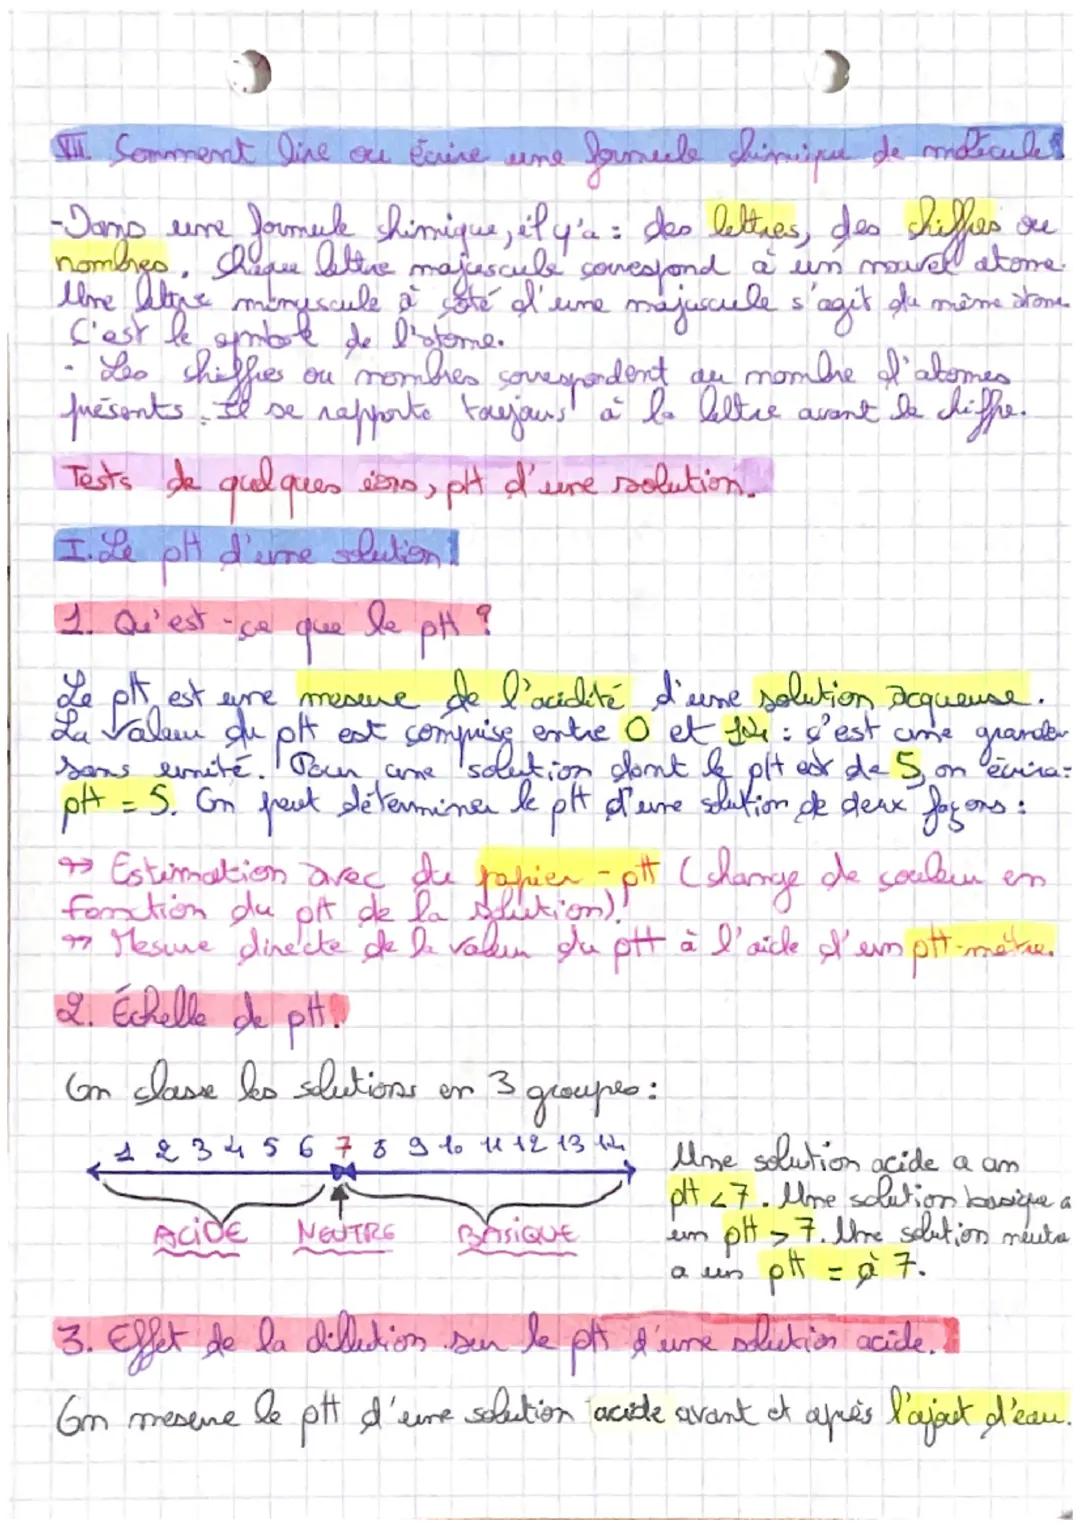 VII. Comment lire ou écrire une formule chimique de molécule
-Dans une formule chimique, il y'a : des lettres, des chiffres ou
nombres. Chaque lettre majuscule correspond à un nouvel atome.
Une lettre minuscule à côté d'une majuscule s'agit du même atome.
C'est le symbole de l'atome.
- Les chiffres ou nombres correspondent au nombre d'atomes
présents. Il se rapporte toujours à la lettre avant le chiffre.
Tests de quelques ions, pH d'une solution.
I. Le pH d'une solution
1. Qu'est-ce que le pH ?
Le pH est une mesure de l'acidité d'une solution acqueuse.
La valeur du pH est comprise entre 0 et 14 : c'est une grandeur
sans unité. Pour une solution dont le pH est de 5, on écrira :
pH = 5. On peut déterminer le pH d'une solution de deux façons :
↪ Estimation avec du papier-pH (change de couleur en
fonction du pH de la solution).
↪ Mesure directe de la valeur du pH à l'aide d'un pH-mètre.
2. Échelle de pH.
On classe les solutions en 3 groupes :
1 2 3 4 5 6 7 8 9 10 11 12 13 14
ACIDE NEUTRE BASIQUE
Une solution acide a un
pH < 7. Une solution basique a
un pH > 7. Une solution neutre
a un pH = à 7.
3. Effet de la dillution sur le pH d'une solution acide.
On mesure le pH d'une solution acide avant et après l'ajout d'eau.